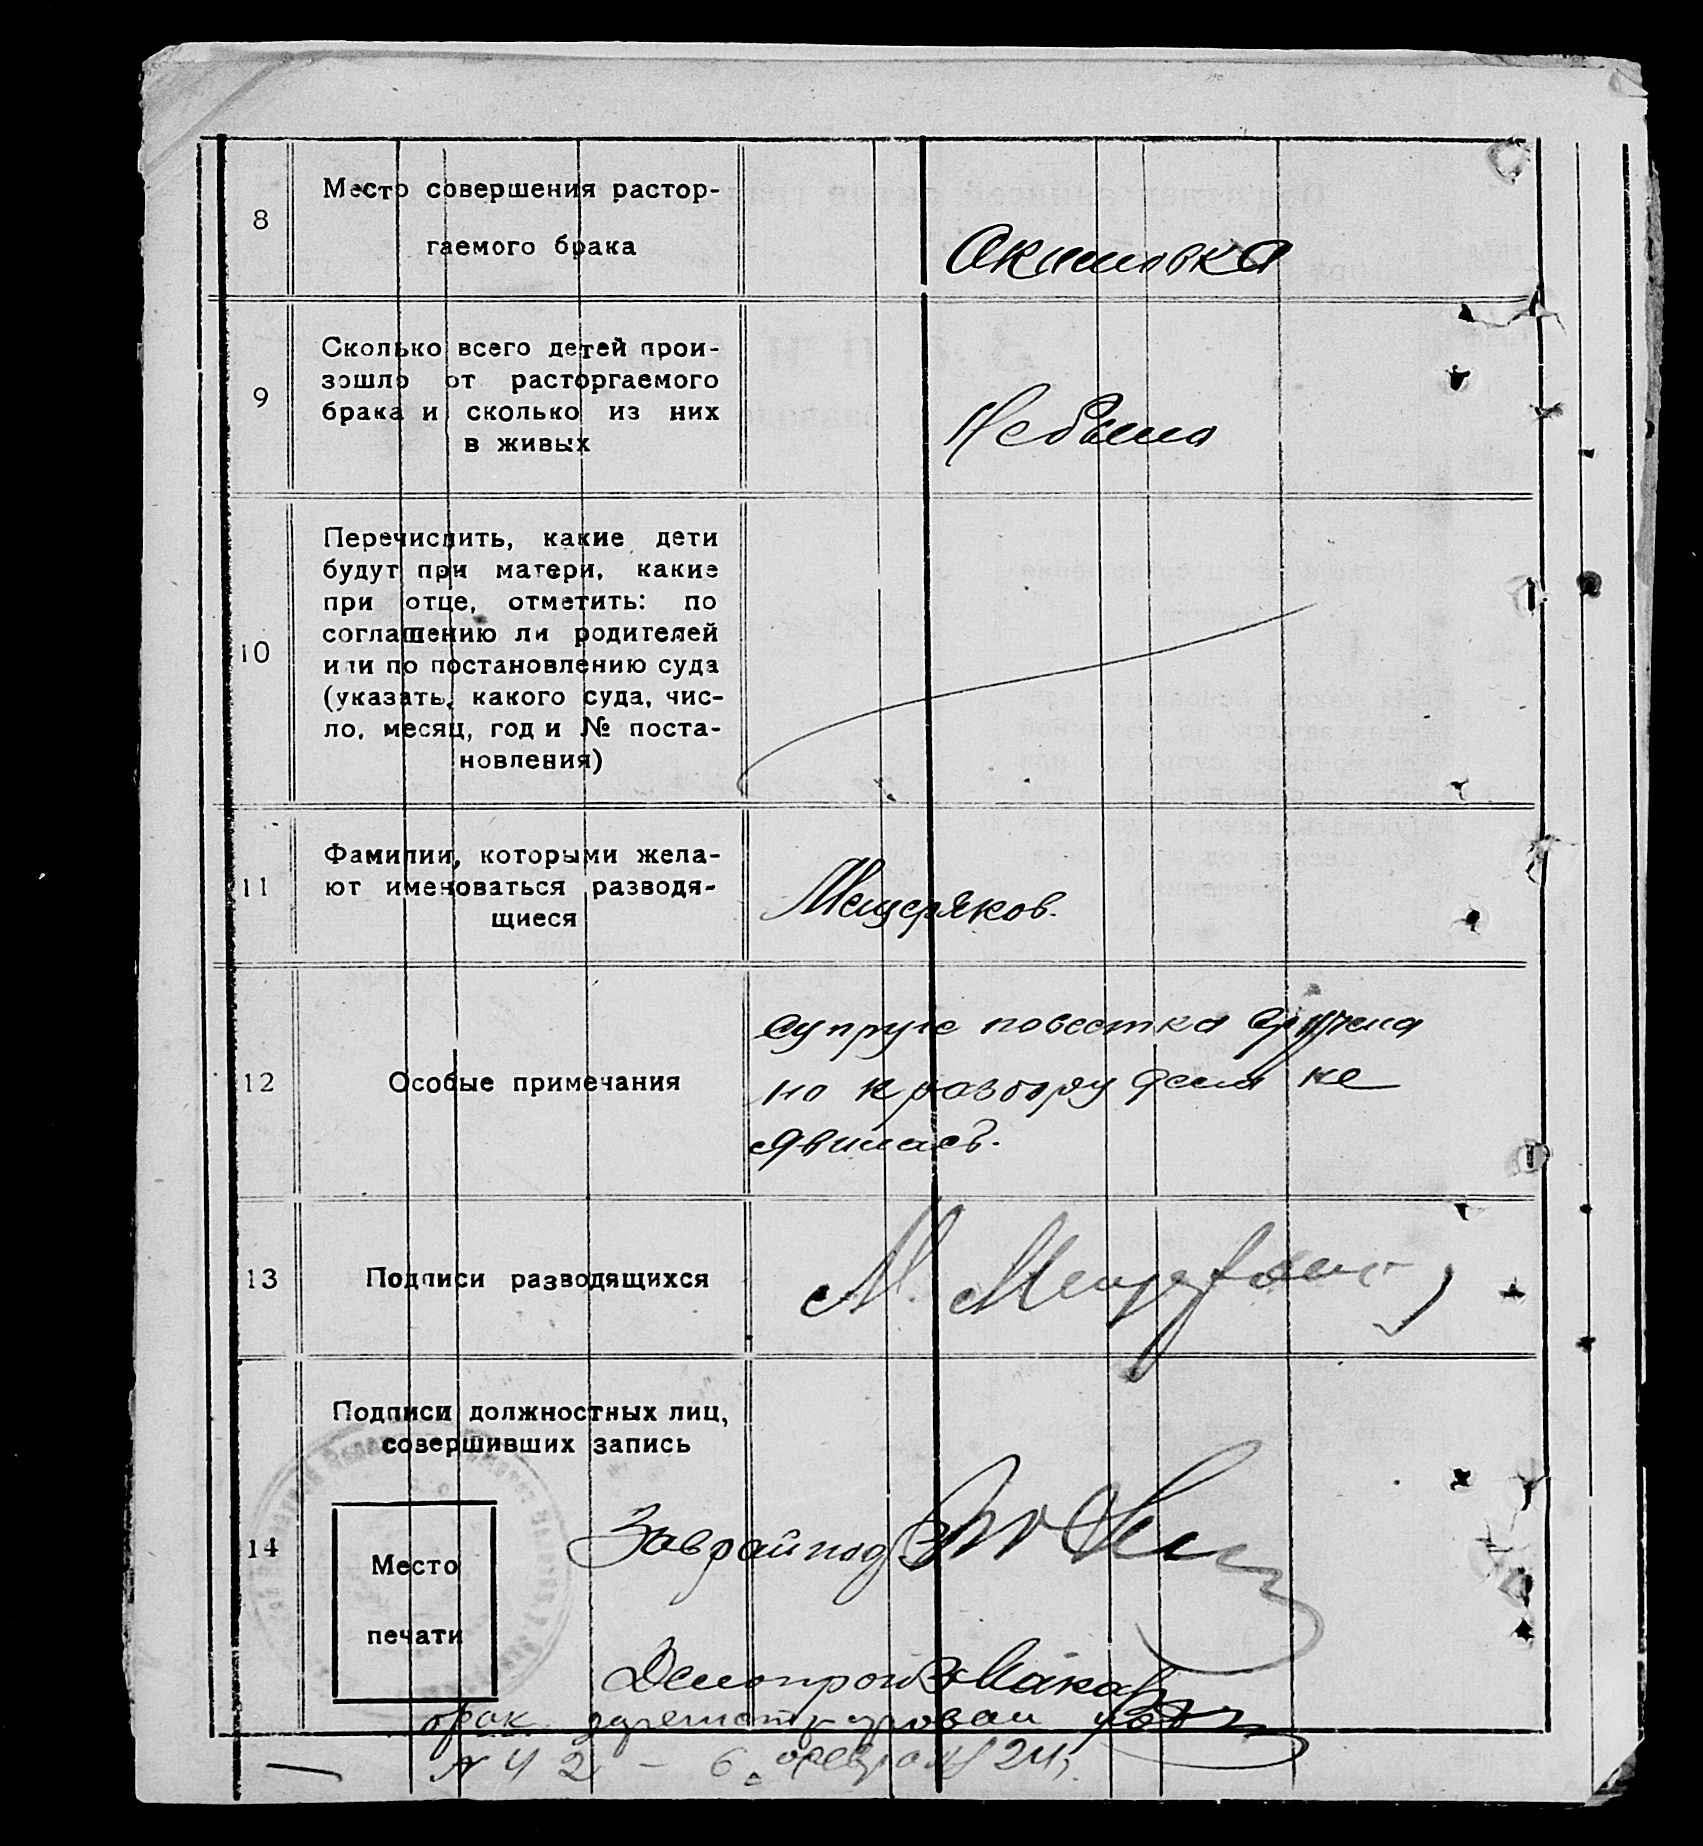 8
Место совершения растор-
гаемого брака
Акашовка
9
Сколько всего детей прои-
зошло от расторгаемого
брака и сколько из них
в живых
Небыло
10
Перечислить, какие дети
будут при матери, какие
при отце, отметить: по
соглашению ли родителей
или по постановлению суда
(указать, какого суда, чис-
ло, месяц, год и № поста-
новления)
11
Фамилии, которыми жела-
ют именоваться разводя-
щиеся
Мещеряков.
12
Особые примечания
Супруге повестка вручена
но к разбору дела не
явилась.
13
Подписи разводящихся
М. Мещеряков
14
Подписи должностных лиц,
совершивших запись
Место
печати
Заврайпод
Делопроизв
брак зарегистрирован
№ 42 - 6 февраля 24г.